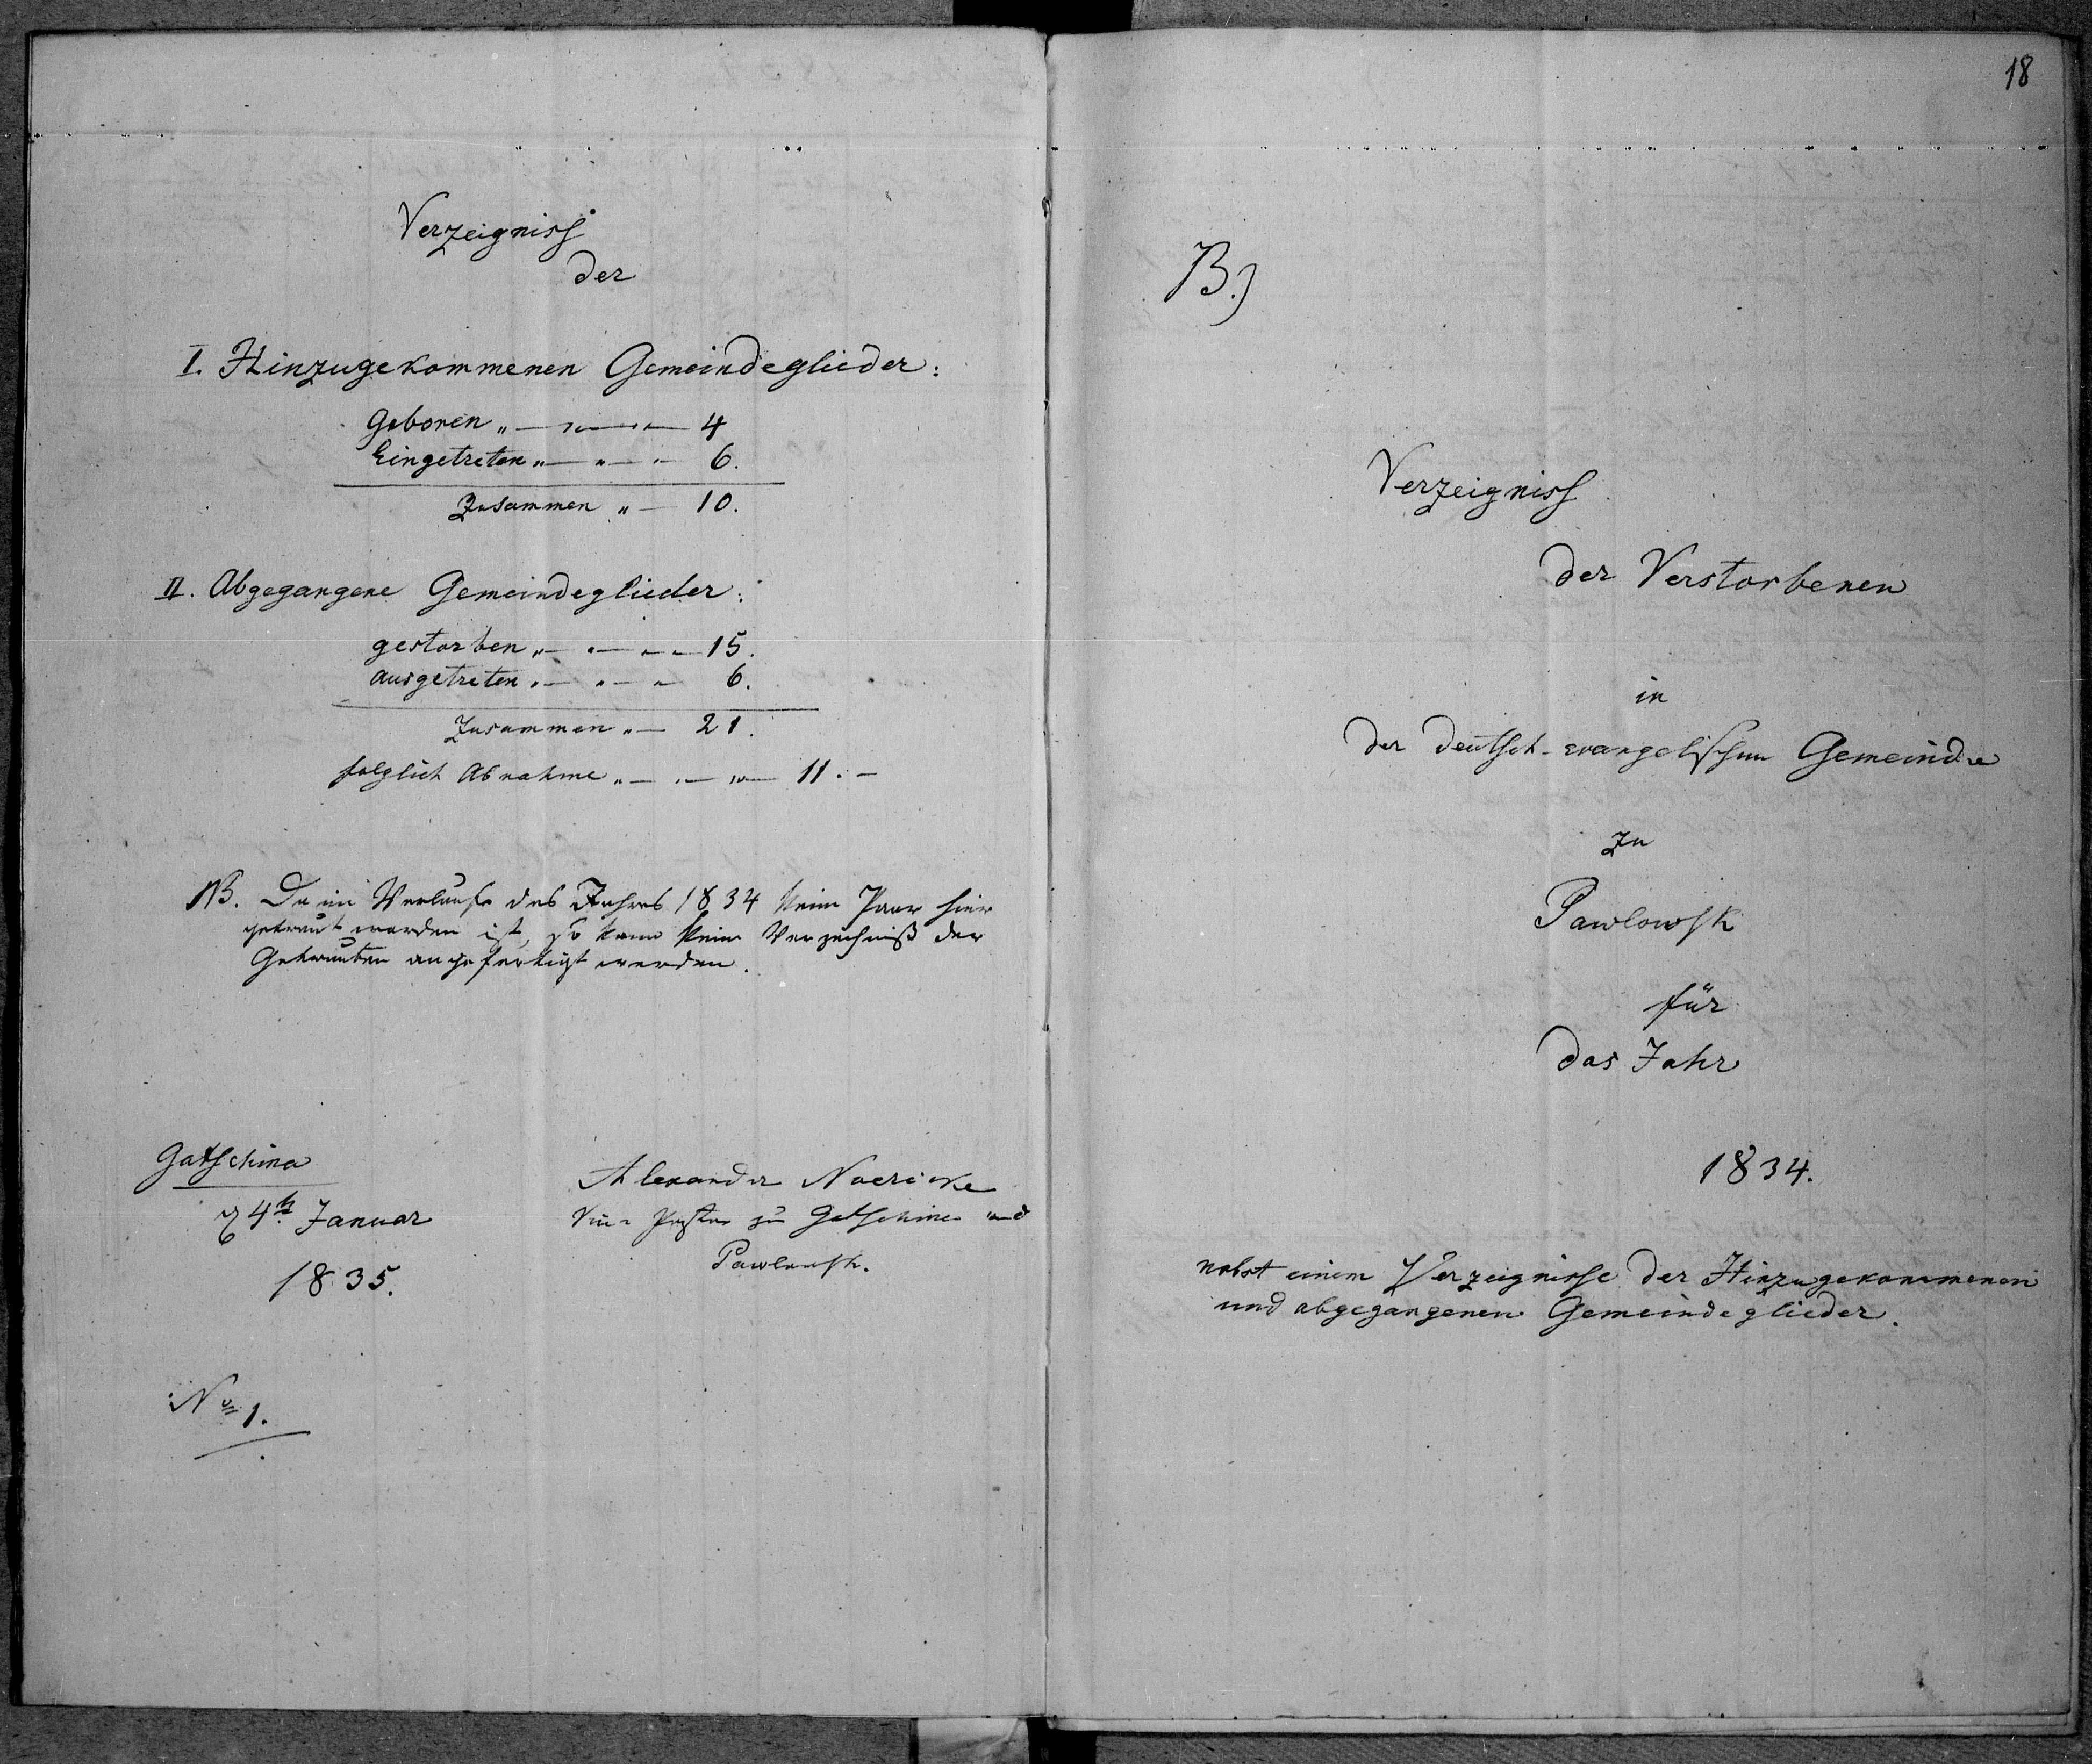 Verzeigniss
der
I. Hinzugekommenen Gemeindeglieder:
Geboren „ — „ — „ — 4
Eingetreten „ — „ — „ 6.
Zusammen „ — 10.
II. Abgegangene Gemeindeglieder:
gestorben „ — „ — „ — 15.
ausgetreten „ — „ — „ 6.
Zusammen „ — 21.
folglich Abnahme „ — „ — „ — 11. —
NB. Da im Verlaufe des Jahres 1834 kein Paar hier
getraut worden ist, so kann kein Verzeichniß der
Getrauten angefertigt werden.
Gatschina
4ten Januar
1835.
Alexander
Pastor zu Gatschina und
Pawlowsk.
No 1.
18
B.)
Verzeigniss
der Verstorbenen
in
der deutsch-evangelischen Gemeinde
zu
Pawlowsk
für
das Jahr
1834.
nebst einem Verzeignisse der Hinzugekommenen
und abgegangenen Gemeindeglieder.